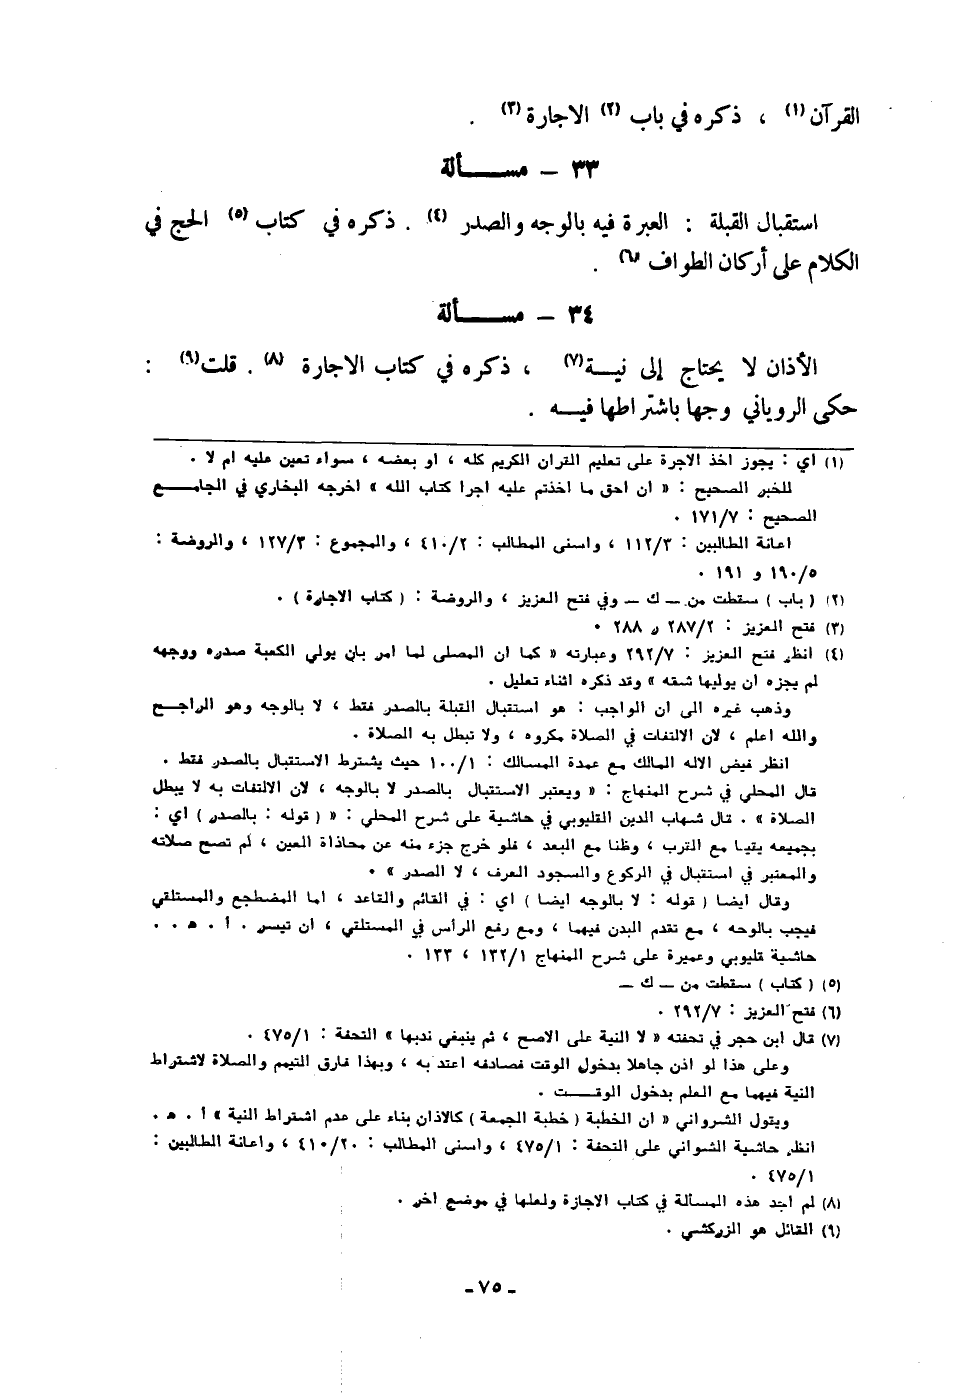 القرآن (١) ، ذكره في باب (٢) الاجارة (٣) .
٣٣ – مسـألة
استقبال القبلة : العبرة فيه بالوجه والصدر (٤) . ذكره في كتاب (٥) الحج في
الكلام على أركان الطواف (٦) .
٣٤ – مسـألة
الأذان لا يحتاج إلى نيــة (٧) ، ذكره في كتاب الاجارة (٨) . قلت (٩) :
حكى الروياني وجها باشتراطها فيــه .
(١) اي : يجوز اخذ الاجرة على تعليم القران الكريم كله ، او بعضه ، سواء تعين عليه ام لا .
للخبر الصحيح : « ان احق ما اخذتم عليه اجرا كتاب الله » اخرجه البخاري في الجامــع
الصحيح : ١٧١/٧ .
اعانة الطالبين : ١١٢/٣ ، واسنى المطالب : ٤١٠/٢ ، والمجموع : ١٢٧/٣ ، والروضة :
١٩٠/٥ و ١٩١ .
(٢) ( باب ) سقطت من – ك – وفي فتح العزيز ، والروضة : ( كتاب الاجارة ) .
(٣) فتح العزيز : ٢٨٧/٢ ر ٢٨٨ .
(٤) انظر فتح العزيز : ٢٩٢/٧ وعبارته « كما ان المصلى لما امر بان يولي الكعبة صدره ووجهه
لم يجزه ان يوليها شقه » وقد ذكره اثناء تعليل .
وذهب غيره الى ان الواجب : هو استقبال القبلة بالصدر فقط ، لا بالوجه وهو الراجــح
والله اعلم ، لان الالتفات في الصلاة مكروه ، ولا تبطل به الصلاة .
انظر فيض الاله المالك مع عمدة المسالك : ١٠٠/١ حيث يشترط الاستقبال بالصدر فقط .
قال المحلي في شرح المنهاج : « ويعتبر الاستقبال بالصدر لا بالوجه ، لان الالتفات به لا يبطل
الصلاة » . قال شهاب الدين القليوبي في حاشية على شرح المحلي : « ( قوله : بالصدر ) اي :
بجميعه يقينا مع القرب ، وظنا مع البعد ، فلو خرج جزء منه عن محاذاة العين ، لم تصح صلاته
والمعتبر في استقبال في الركوع والسجود العرف ، لا الصدر » .
وقال ايضا ( قوله : لا بالوجه ايضا ) اي : في القائم والقاعد ، اما المضطجع والمستلقي
فيجب بالوجه ، مع تقدم البدن فيهما ، ومع رفع الرأس في المستلقي ، ان تيسر . أ . هـ . .
حاشية قليوبي وعميرة على شرح المنهاج ١٣٢/١ ، ١٣٣ .
(٥) ( كتاب ) سقطت من – ك –
(٦) فتح العزيز : ٢٩٢/٧ .
(٧) قال ابن حجر في تحفته « لا النية على الاصح ، ثم ينبغي ندبها » التحفة : ٤٧٥/١ .
وعلى هذا لو اذن جاهلا بدخول الوقت فصادفه اعتد به ، وبهذا فارق التيمم والصلاة لاشتراط
النية فيهما مع العلم بدخول الوقـــت .
ويتول الشرواني « ان الخطبة ( خطبة الجمعة ) كالاذان بناء على عدم اشتراط النية » أ . هـ .
انظر حاشية الشواني على التحفة : ٤٧٥/١ ، واسنى المطالب : ٤١٠/٢٠ ، واعانة الطالبين :
٤٧٥/١ .
(٨) لم اجد هذه المسألة في كتاب الاجازة ولعلها في موضع اخر .
(٩) القائل هو الزركشي .
- ٧٥ -